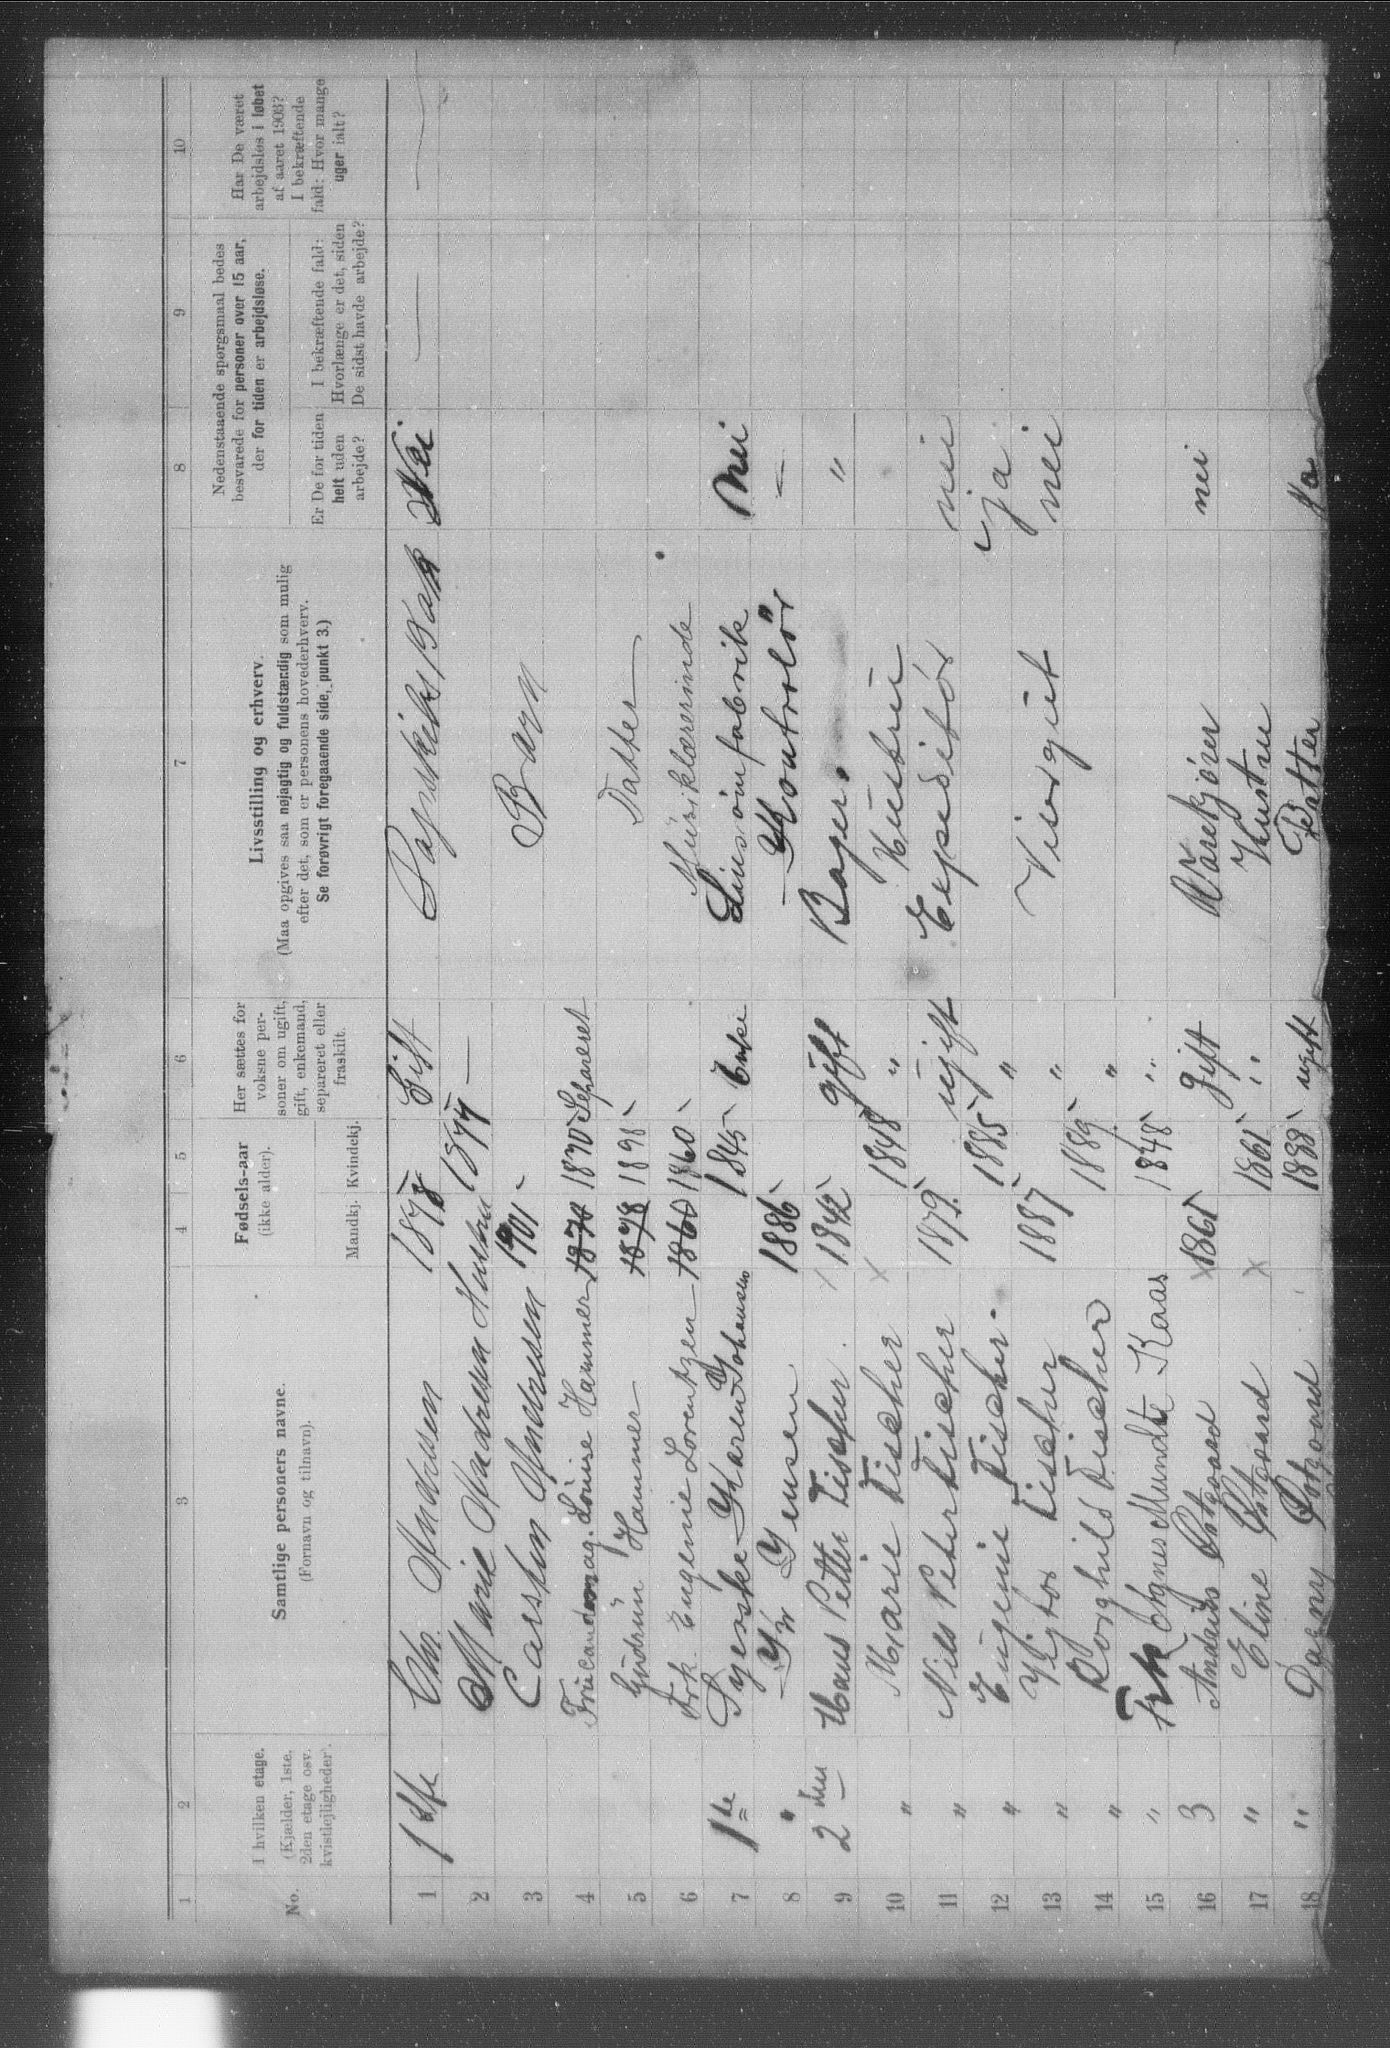 1 2 3 4 5 6 7 8 9 10
No.
I hvilken etage.
(Kjælder, 1ste.
2den etage osv.
kvistlejligheder).
Samtlige personers navne.
(Fornavn og tilnavn).
Fødsels-aar
(ikke alder).
Mandkj. Kvindekj.
Her sættes for
voksne per-
soner om ugift,
gift, enkemand,
separeret eller
fraskilt.
Livsstilling og erhverv.
(Maa opgives saa nøjagtig og fuldstændig som mulig
efter det, som er personens hovederhverv.
Se forøvrigt foregaaende side, punkt 3.)
Nedenstaaende spørgsmaal bedes
besvarede for personer over 15 aar,
der for tiden er arbejdsløse.
Er De for tiden
helt uden
arbejde?
I bekræftende fald:
Hvorlænge er det, siden
De sidst havde arbejde?
Har De været
arbejdsløs i løbet
af aaret 1903?
I bekræftende
fald: Hvor mange
uger ialt?
1 1ste Chr. Andresen 1875 Gift Nei — —
2 Marie Andresen Hustru 1874 —
3 Carsten Andresen 1901 Barn
4 Louise Hammer 1870 1870 Separeret
5 Gudrun Hammer 1898 1898 Datter
6 Frk. Eugenie Lorentzen 1860 1860 Musiklærerinde
7 1ste Karen Johansen 1845 Enke nei
8 " Jensen 1886 Kontrolør —
9 2den Hans Petter Fischer 1842 gift Bager "
10 " Marie Fischer 1848 " Hustru
11 " Nils Peter Fischer 1879 ugift Expeditør nei
12 " Eugenie Fischer 1885 " ja
13 " Viktor Fischer 1887 " Visergut nei
14 " Borghild Fischer 1889 "
15 " Frk Agnes Mundte Kaas 1848 "
16 3 Andreas Østgaard 1861 gift Vårekjører nei
17 " Eline Østgaard 1861 " Hustru
18 " Dagny Østgaard 1888 ugift Datter Ja